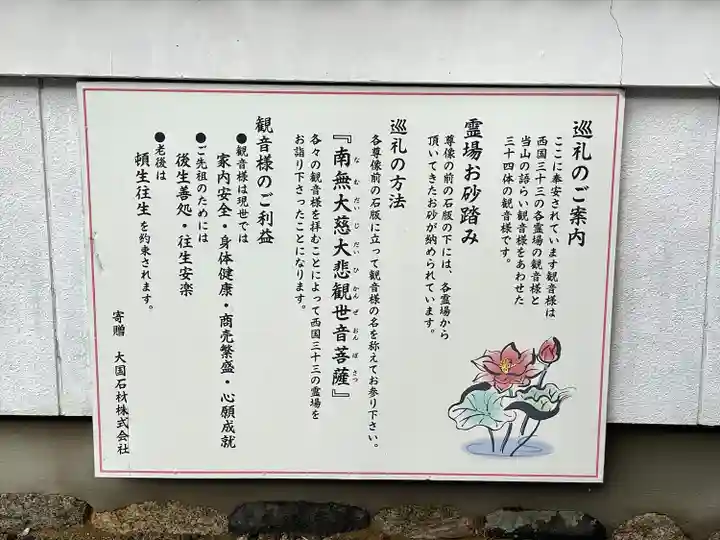 巡礼のご案内
ここに泰安されています観音様は
西国三十三の各霊場の観音様と
当山の語らい観音様をあわせた
三十四体の観音様です。
霊場お砂踏み
尊像の前の石版の下には、各霊場から
頂いてきたお砂が納められています。
巡礼の方法
各尊像前の石版に立って観音様の名を称えてお参り下さい。
『南無大慈大悲観世音菩薩』
なむだいじだいひかんぜおんぼさつ
各々の観音様を拝むことによって西国三十三の霊場を
お詣り下さったことになります。
観音様のご利益
●観音様は現世では
家内安全・身体健康・商売繁盛・心願成就
●ご先祖のためには
後生善処・往生安楽
●老後は
頓生往生を約束されます。
寄贈 大国石材株式会社